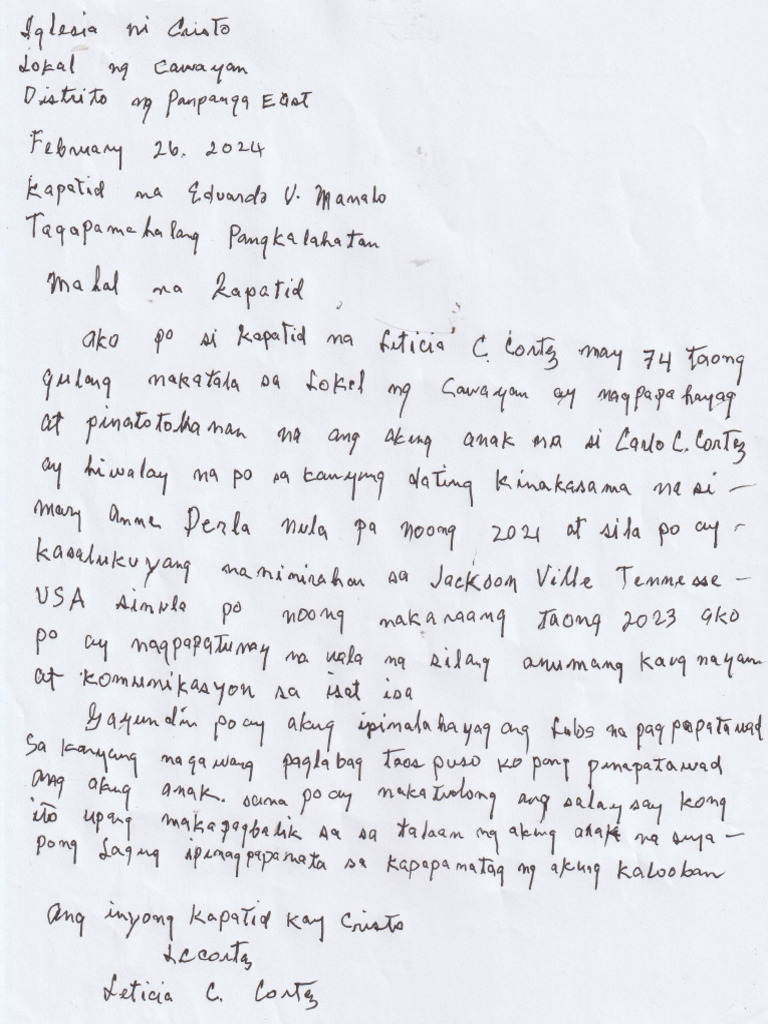 Iglesia ni Cristo
Lokal ng Cawayan
Distrito ng Panpanga East
February 26. 2024
Kapatid na Eduardo V. Manalo
Tagapamahalang Pangkalahatan
Mahal na Kapatid
ako po si kapatid na Leticia C. Cortez may 74 taong
gulang nakatala sa Lokal ng Cawayan ay nagpapahayag
at pinatotohanan na ang aking anak na si Carlo C. Cortez
ay hiwalay na po sa kanyang dating kinakasama na si -
mary anne Perla mula pa noong 2021 at sila po ay -
kasalukuyang naninirahan sa Jackson Ville Tennesse -
USA simula po noong nakaraang taong 2023 ako
po ay nagpapatunay na wala na silang anumang kaugnayan
at komunikasyon sa isat isa
Gayundin po ay aking ipinalahayag ang lubos na pagpapatawad
sa kanyang nagawang paglabag taos puso ko pong pinapatawad
ang aking anak. sana po ay nakatulong ang salaysay kong
ito upang makapagbalik sa sa talaan ng aking anak na siya -
pong laging ipinagpapanata sa kapapanatag ng aking kalooban
ang inyong kapatid kay Cristo
LCcortez
Leticia C. Cortez